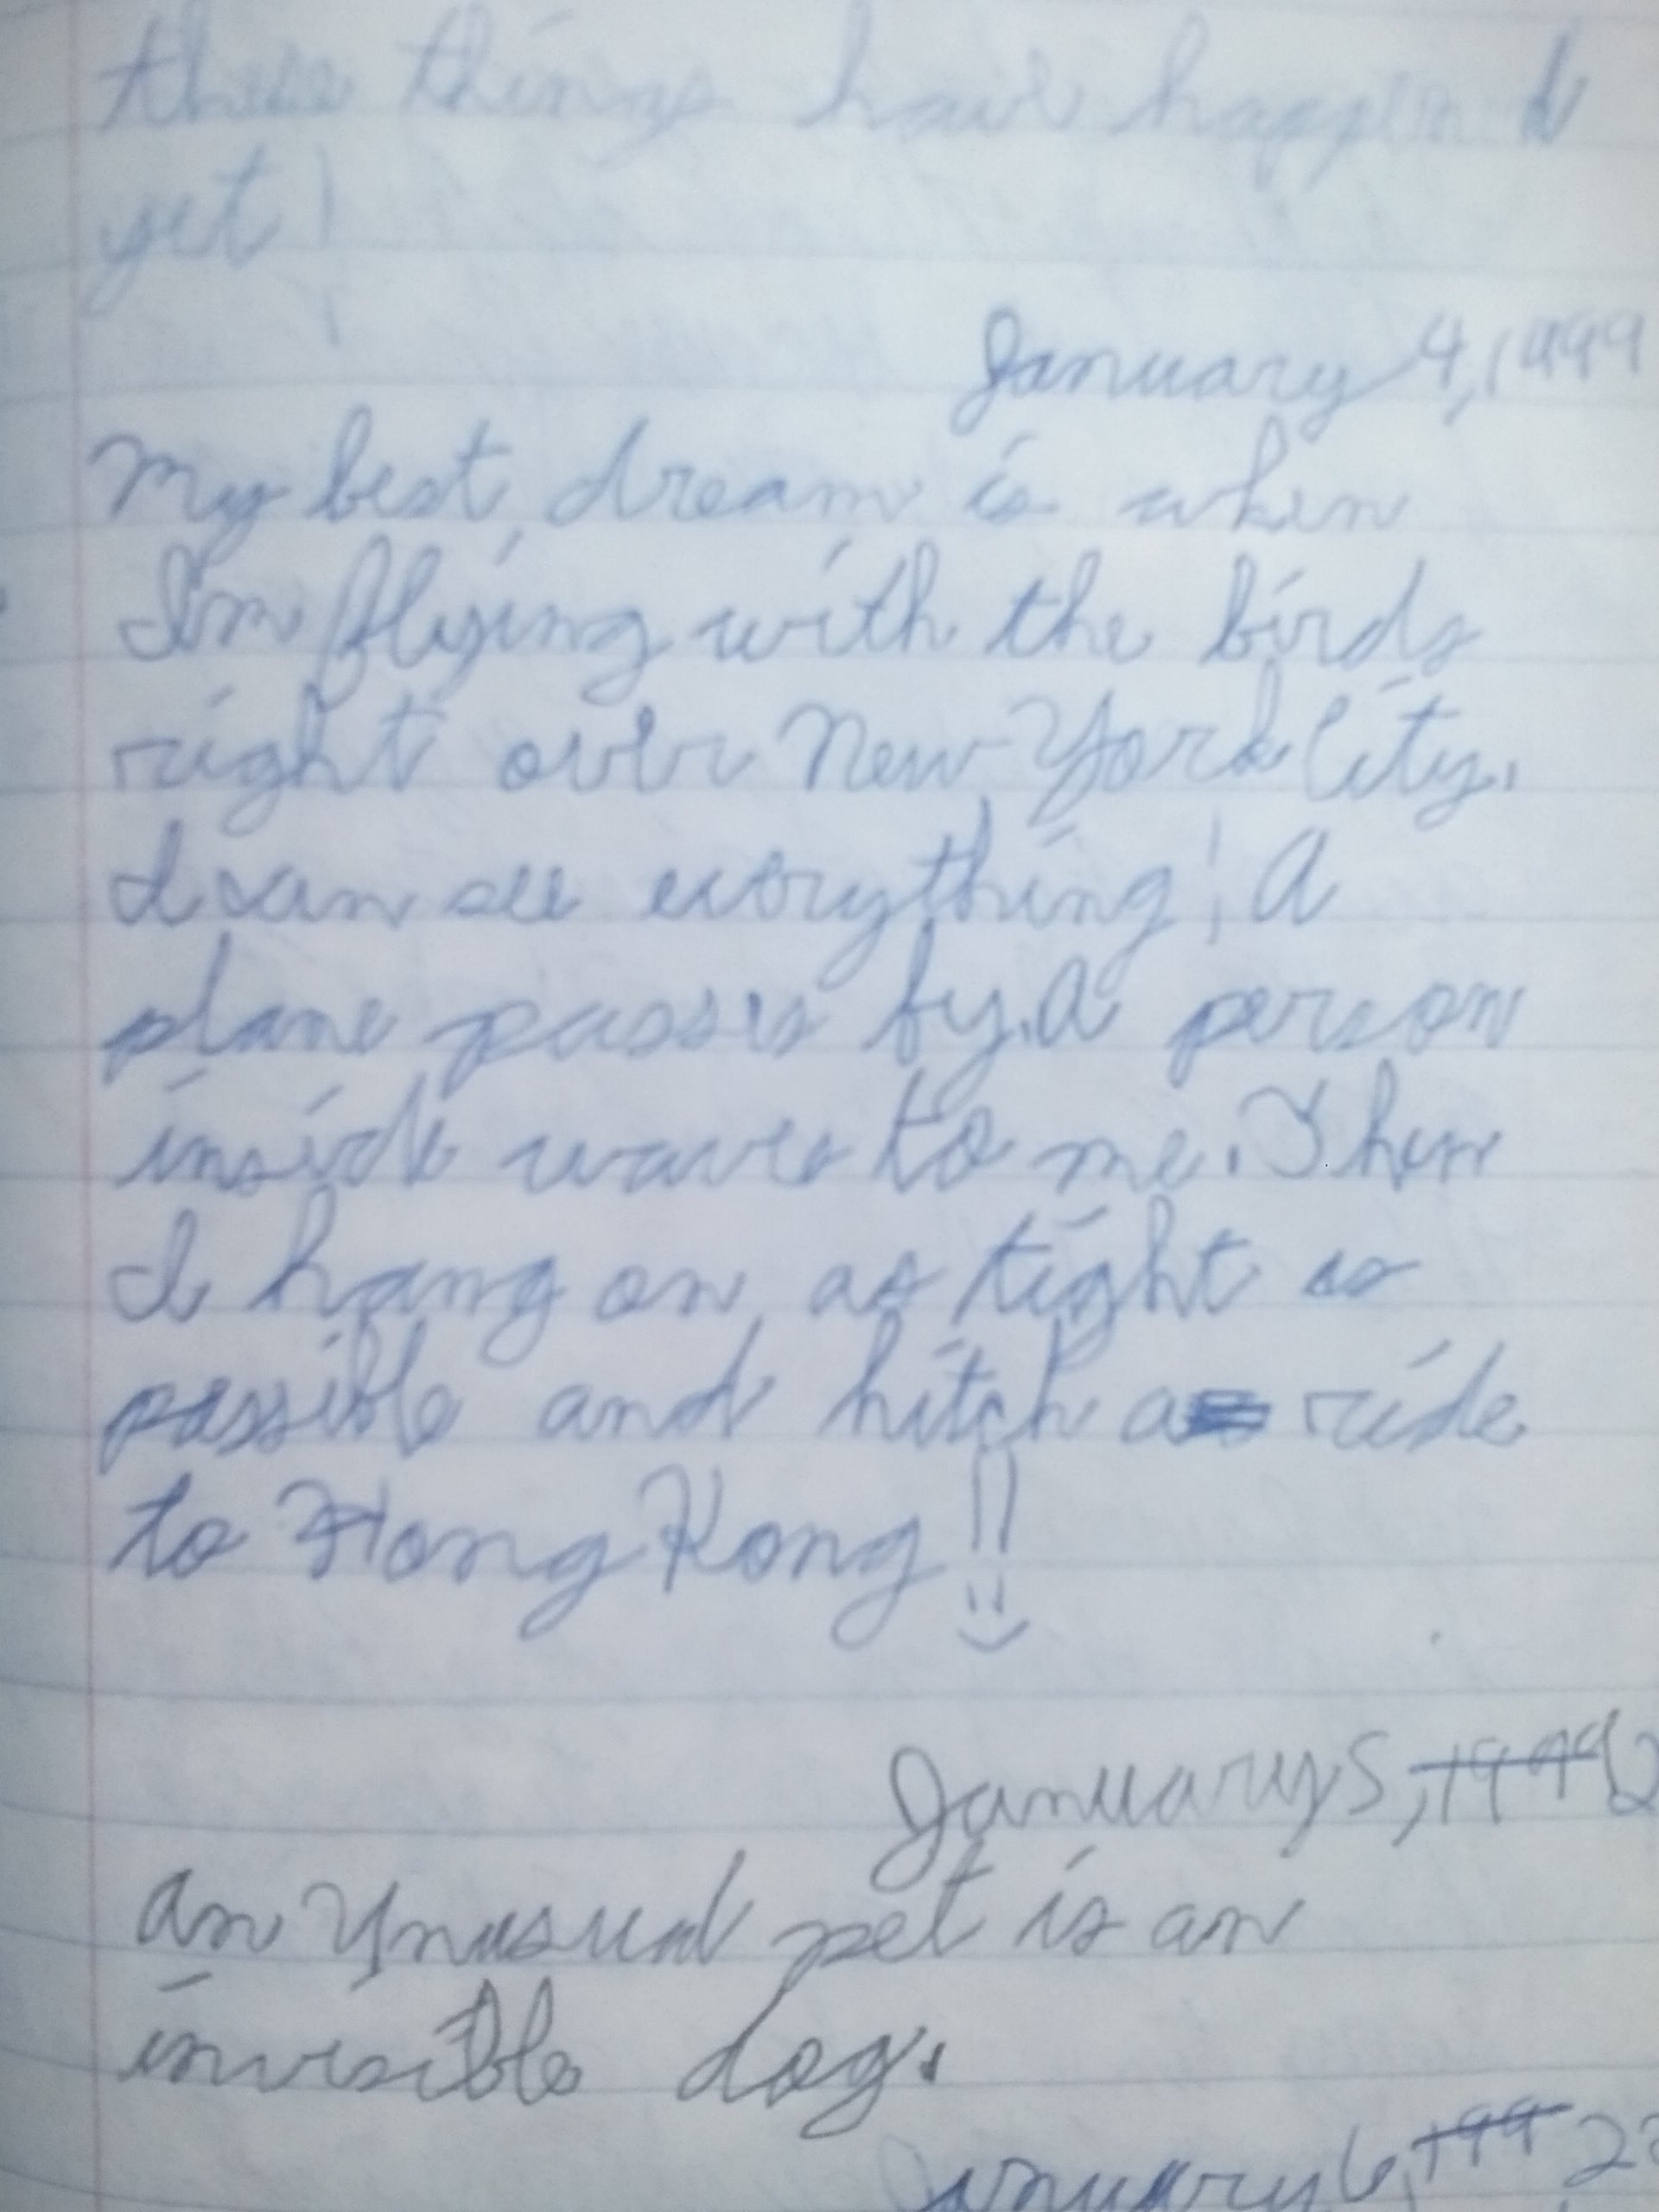 these things have happened
yet!
January 4, 1999
My best dream is when
I'm flying with the birds
right over New York City.
I can see everything! A
plane passes by. A person
inside waves to me. Then
I hang on as tight as
possible and hitch a ride
to Hong Kong!!
January 5, 1999 2
An Unusual pet is an
invisible dog.
January 6, 199 2